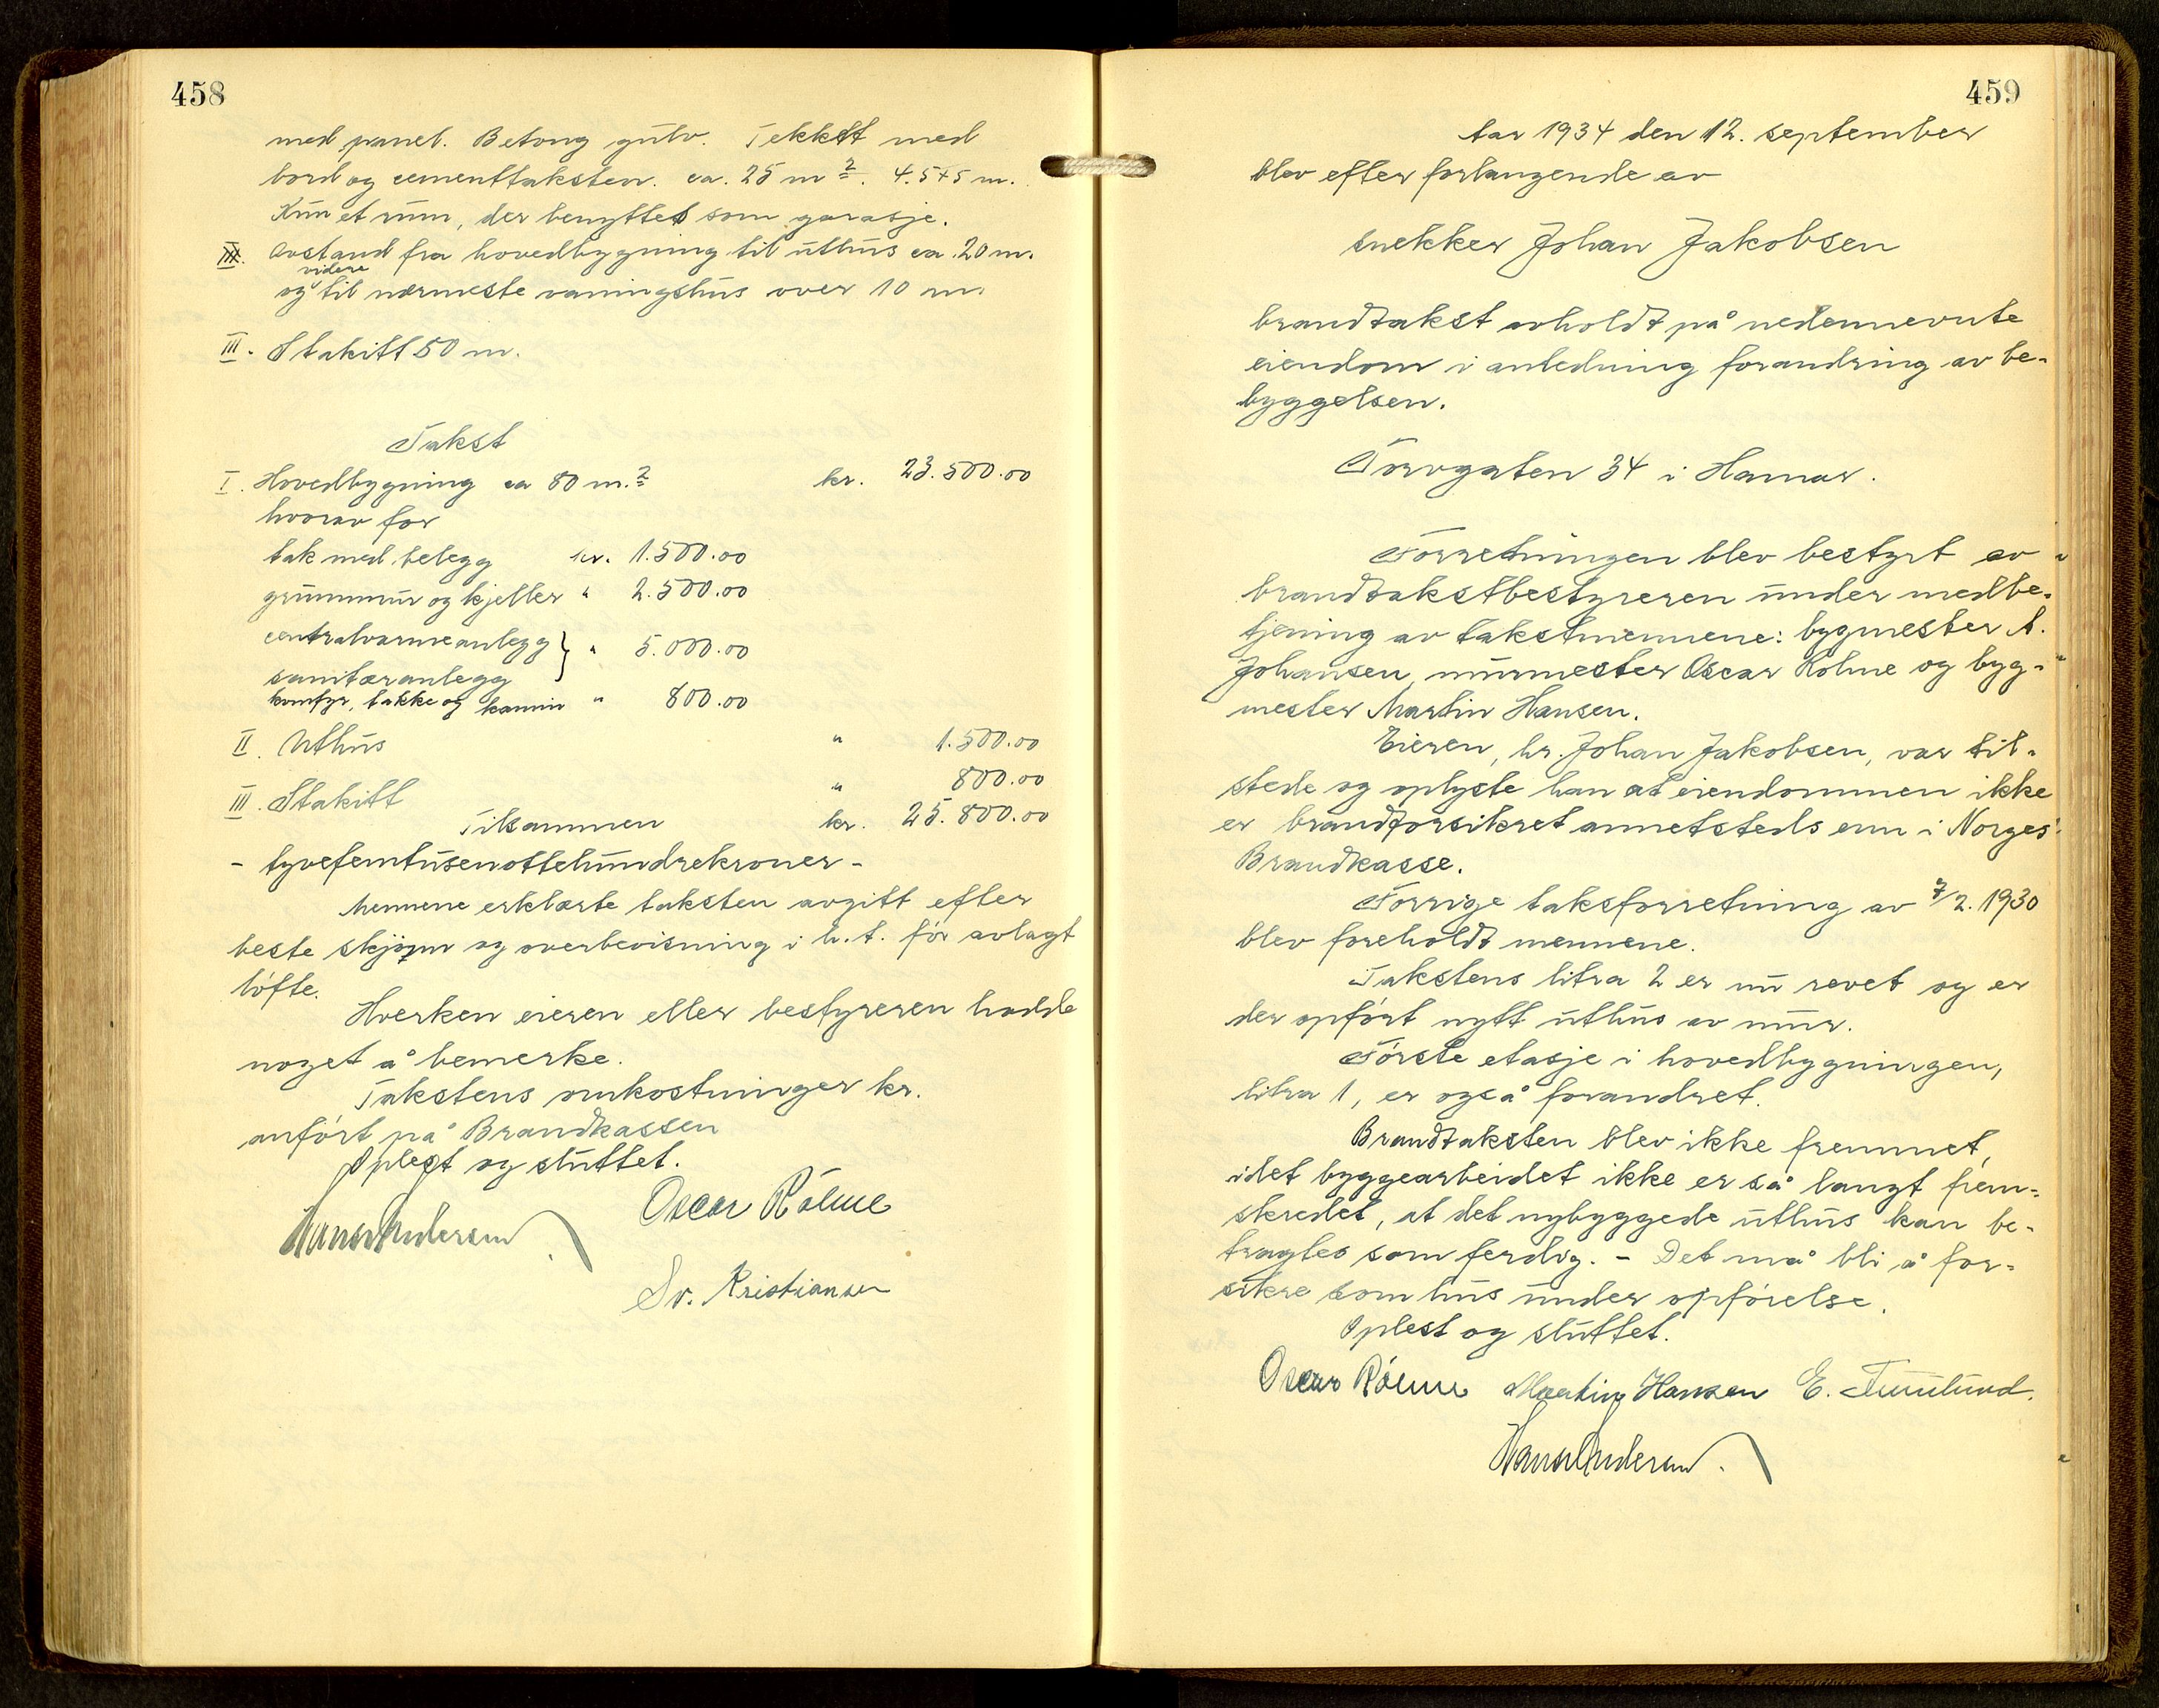 458
med panel. Betong gulv. Tekket med
bord og cementtaksten. ca. 25 m². 4.5+5 m.
Kun et rum, der benyttes som garasje.
Avstand fra hovedbygning til uthus ca. 20 m.
videre
og til nærmeste vaningshus over 10 m.
III. Stakitt 50 m.
Takst
I. Hovedbygning ca 80 m.² kr. 23.500.00
hvorav for
tak med belegg kr. 1.500.00
grunnmur og kjeller " 2.500.00
centralvarmeanlegg } " 5.000.00
sanitæranlegg
komfyr, takke og kamin " 800.00
II. Uthus " 1.500.00
III. Stakitt " 800.00
Tilsammen kr. 25.800.00
- tyvefemtusenottehundrekroner -
Mennene erklærte taksten avgitt efter
beste skjønn og overbevisning i h.t. før avlagt
løfte.
Hverken eieren eller bestyreren hadde
noget å bemerke.
Takstens omkostninger kr.
anført på Brandkassen
Oplest og sluttet.
Hans Andersen Oscar Rölme
Sv. Kristiansen
459
Aar 1934 den 12. september
blev efter forlangende av
snekker Johan Jakobsen
brandtakst avholdt på nedennevnte
eiendom i anledning forandring av be-
byggelsen.
Torvgaten 34 i Hamar.
Forretningen blev bestyrt av
brandtakstbestyreren under medbe-
tjening av takstmennene: bygmester A.
Johansen, murmester Oscar Rölme og byg-
mester Martin Hansen.
Eieren, hr. Johan Jakobsen, var til-
stede og oplyste han at eiendommen ikke
er brandforsikret annetsteds enn i Norges
Brandkasse.
Forrige taksforretning av 7/2. 1930
blev foreholdt mennene.
Takstens litra 2 er nu revet og er
der opført nytt uthus av mur.
Første etasje i hovedbygningen,
litra 1, er også forandret.
Brandtaksten blev ikke fremmet,
idet byggearbeidet ikke er så langt frem-
skredet, at det nybyggede uthus kan be-
tragtes som ferdig. - Det må bli å for-
sikre som hus under opførelse.
Oplest og sluttet.
Oscar Rölme Martin Hansen E.
Hans Andersen.